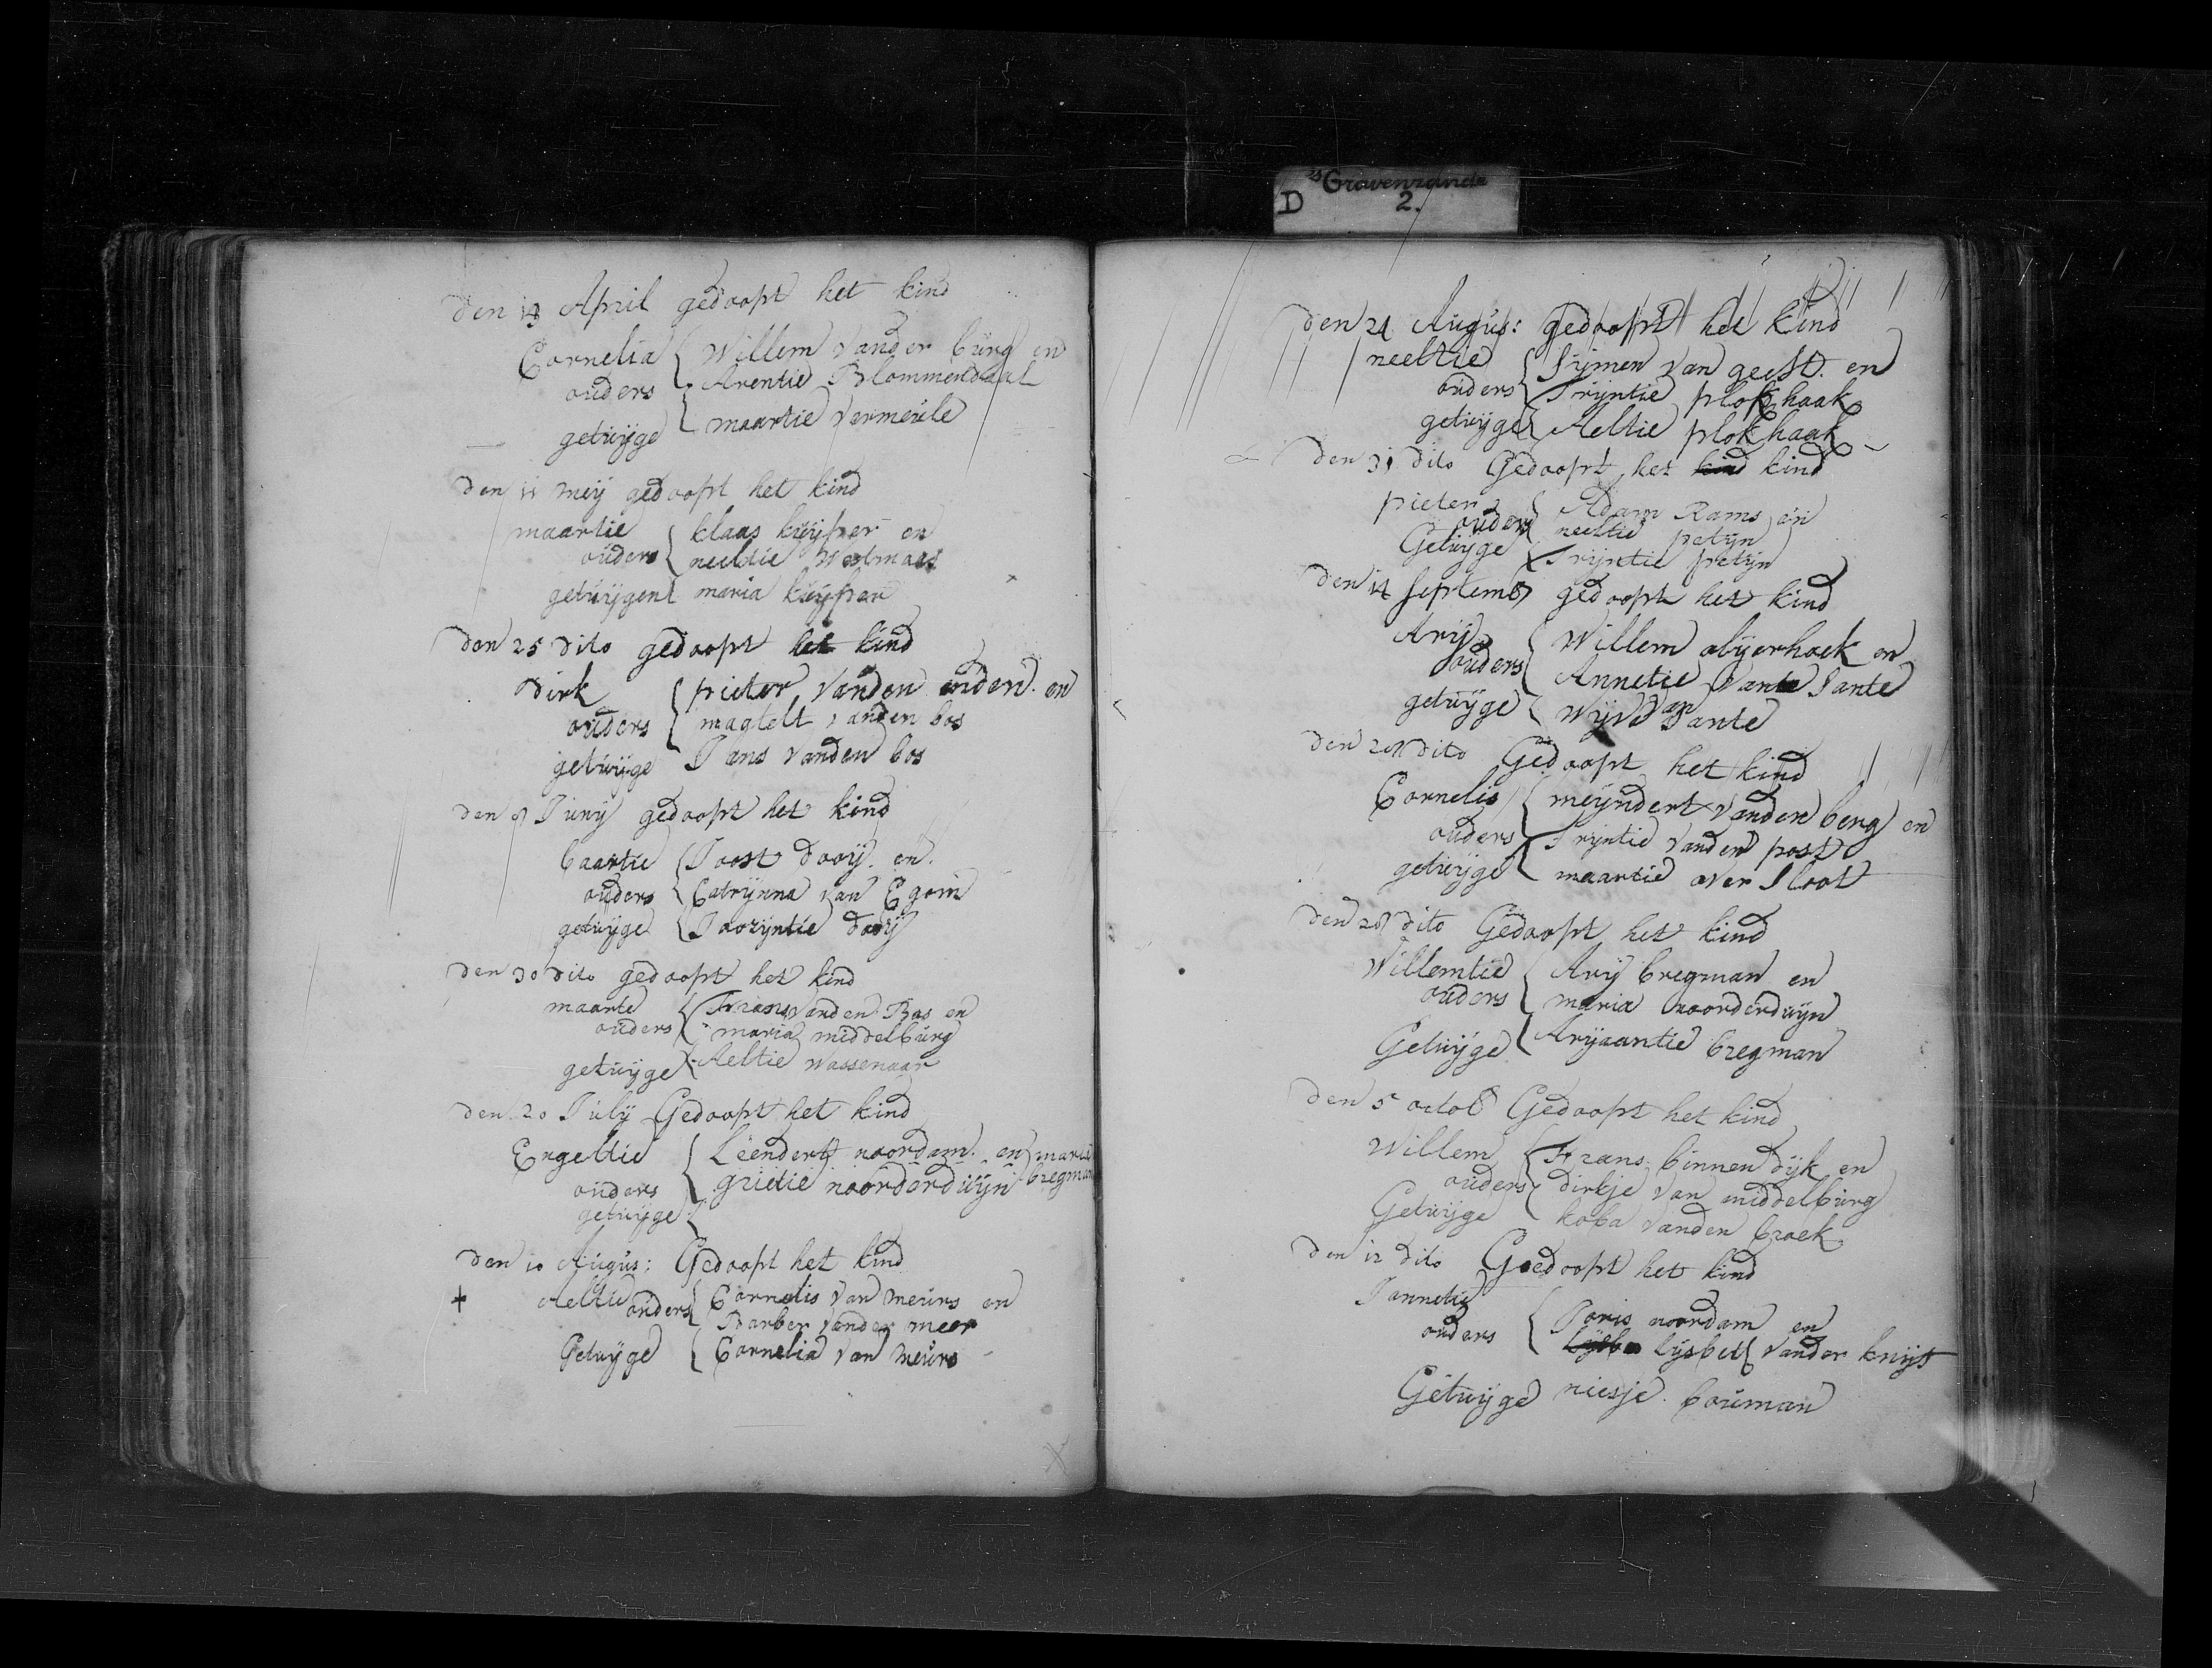 D 's Gravenzande
2.
den 13 April gedoopt het kind
Cornelia { Willem vander burg en
ouders { Arentie Blommendaal
getuijge { maartie vermeule
den 11 meij gedoopt het kind
maartie { klaas kuijper en
ouders { neeltie Westmaas
getuijgen { maria kuijper
den 25 dito gedoopt het kind
Dirk { pieter vanden enden en
ouders { magtelt vanden bos
getuijge Jans vanden bos
den 8 Junij gedoopt het kind
baartie { Joost dooij en
ouders { Catrijnna van Egom
getuijge { Joorijntie dooij
den 30 dito gedoopt het kind
maarte { Frans vanden Bos en
ouders { maria middelburg
getuijge { Aeltie wassenaar
den 20 Julij Gedoopt het kind
Engeltie { Leendert noordam en } maria
ouders { grietie noorderduijn } bregman
getuijge {
den 10 Augus: Gedoopt het kind
+ Aeltie ouders { Cornelis van meurs en
Barber vander meer
Getuijge { Cornelia van meurs
den 24 Augus: gedoopt het kind
neeltie { Sijmen van geest en
ouders { Trijntie plokhaak
getuijge { Aeltie plokhaak
den 31 dito Gedoopt het kind kind
pieter { Adam Rams en
ouders { neeltie petijn
Getuijge { Trijntie petijn
den 14 septemb gedoopt het kind
Arij { Willem olijerhoek en
ouders { Annetie Vante Sante
getuijge { Wijve van Sante
den 21 dito Gedoopt het kind
Cornelis { meijndert vanden berg en
ouders { Trijntie vanden post
getuijge { maartie over Sloot
den 28 dito Gedoopt het kind
Willemtie { Arij bregman en
ouders { maria noorderduijn
Getuijge { Arijaantie bregman
den 5 octob Gedoopt het kind
Willem { Frans binnendijk en
ouders { dirkje van middelburg
Getuijge { koba vanden broek
den 12 dito Goedoopt het kind
Jannetie
ouders { Joris noordam en
lijsbet vander knijf
Getuijge niesje bouman